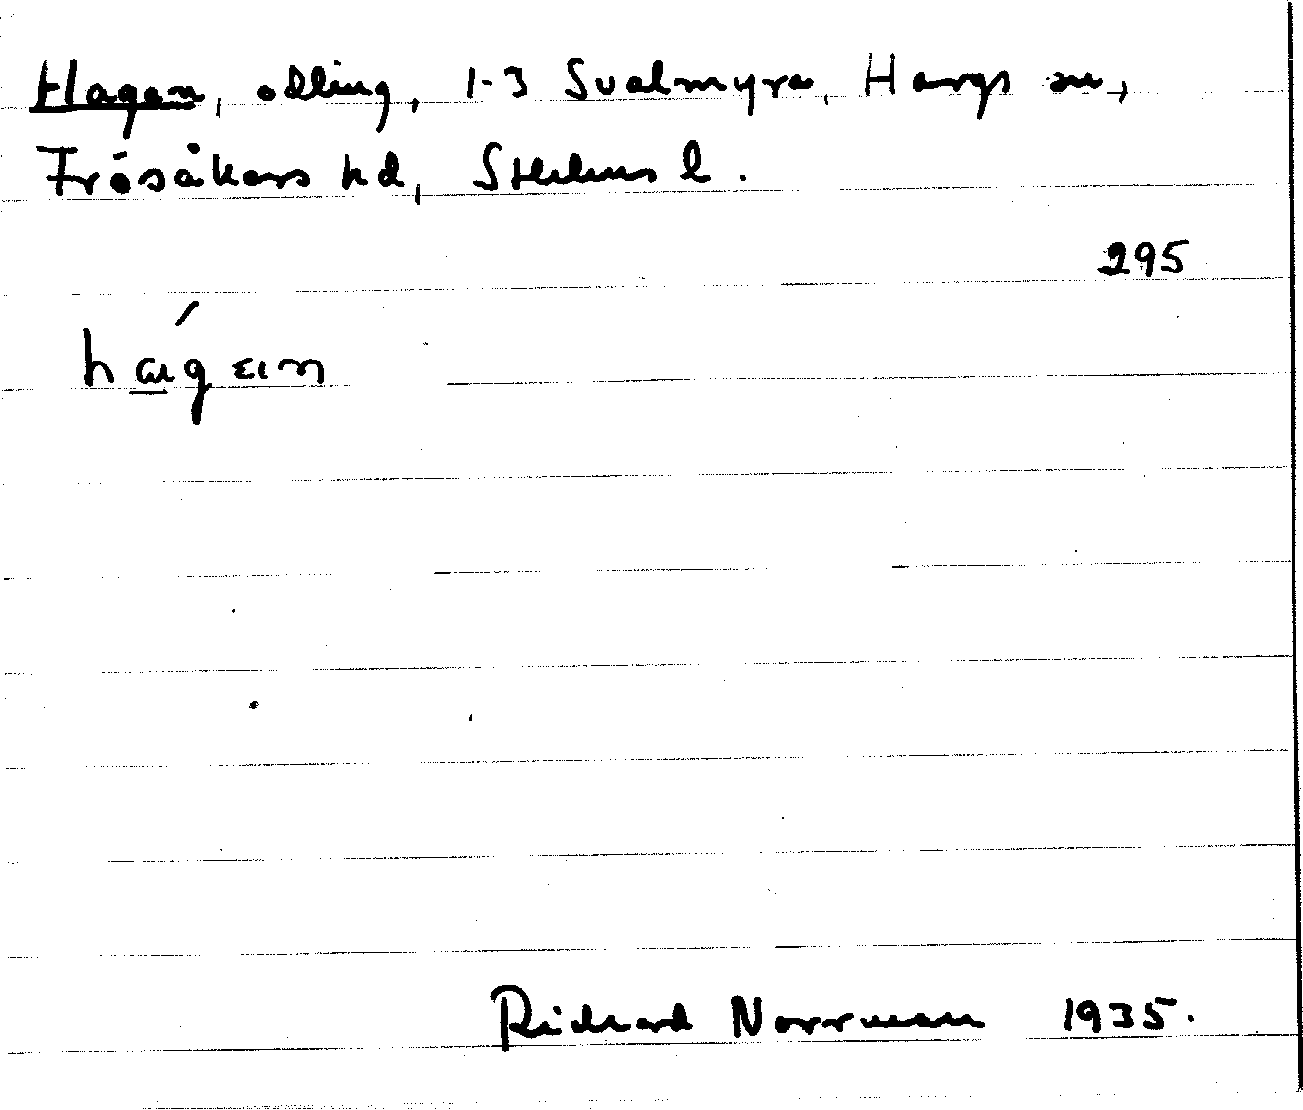 Hagan, odling, 1-3 Svalmyra, Hargs sn,
Frösåkers hd, Sthlms l.
295
Richard Norrman 1935.